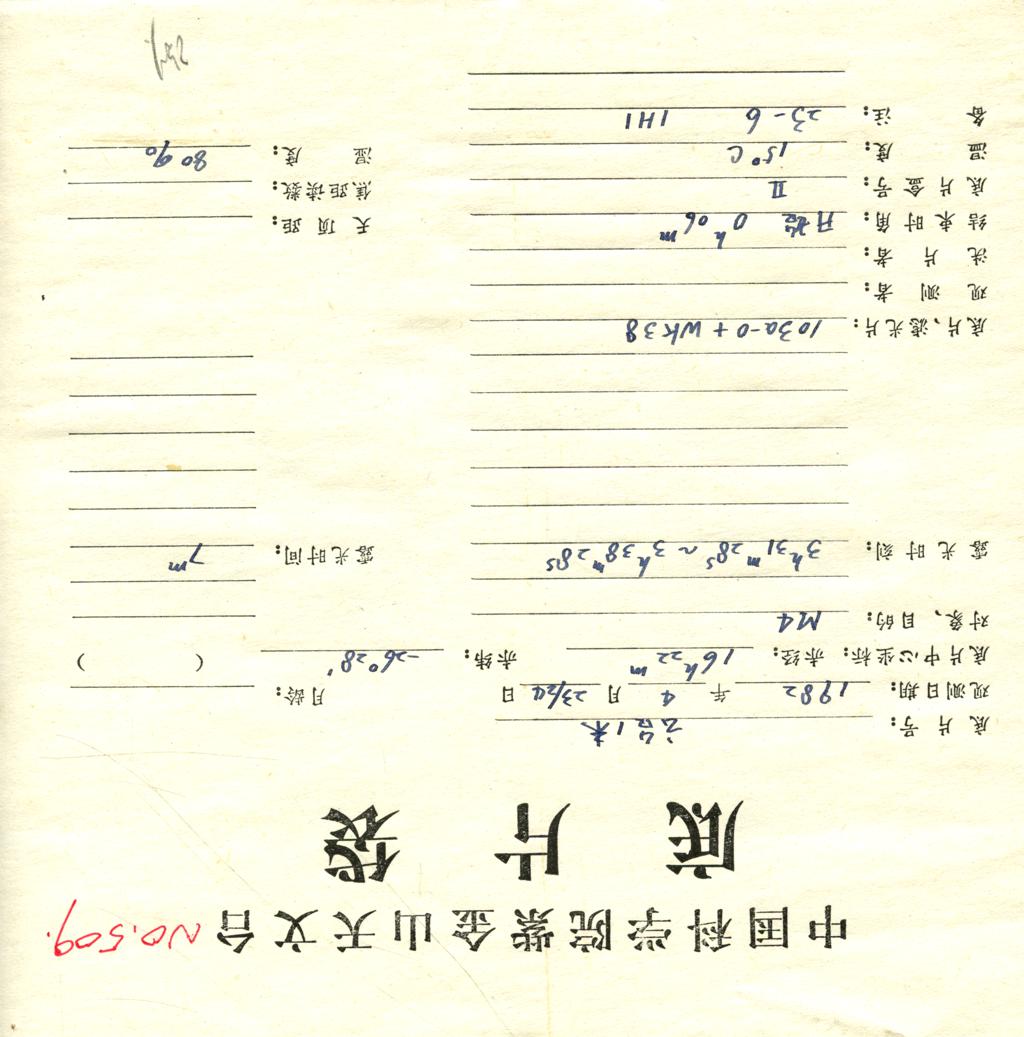 中国科学院紫金山天文台 NO.509.
底片袋
底片号: 云台1米
观测日期: 1982 年 4 月 23/24 日 月龄:
底片中心坐标: 赤经: 16h 22m 赤纬: -26°28′ ( )
对象、目的: M4
露光时刻: 3h31m28s~3h38m28s 露光时间: 7m
底片、滤光片: 103a-O+WK38
观测者:
洗片者:
结束时角: 0h06m 天顶距:
底片盒号: II 焦距读数:
温度: 15°C 湿度: 80%
备注: 23-6 1H1